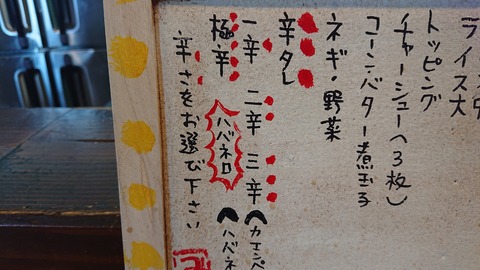 ライス大
トッピング
チャーシュー（3枚）
コーンバター煮玉子
ネギ・野菜
辛タレ
一辛 二辛 三辛（カエンペ
極辛 ハバネロ（ハバネ
辛さをお選び下さい